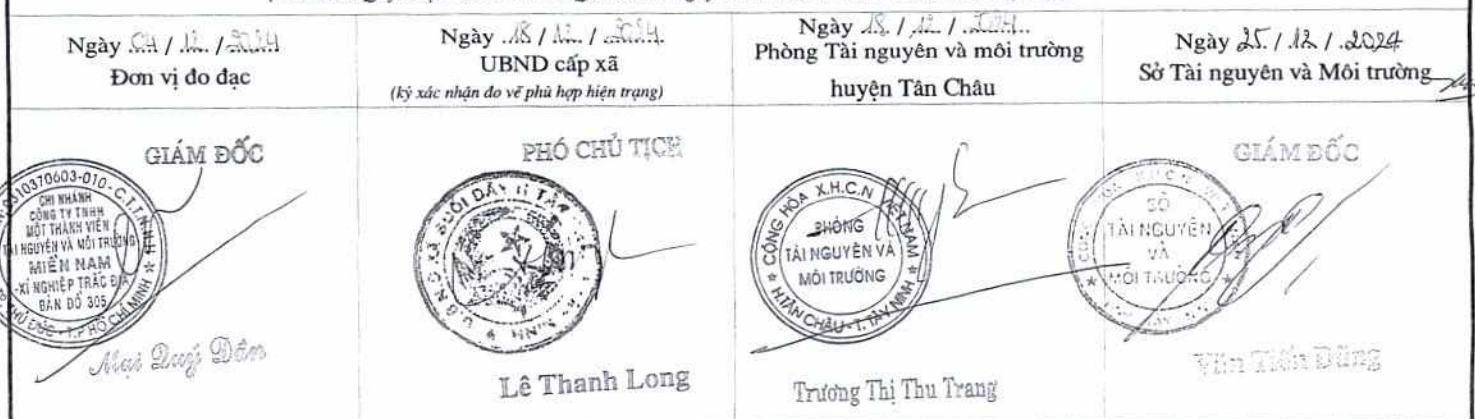 Ngày 04 / 12 / 2024
Đơn vị đo đạc
GIÁM ĐỐC
0310370603-010 - C.T.T.N.H.H
CHI NHÁNH
CÔNG TY TNHH
MỘT THÀNH VIÊN
TÀI NGUYÊN VÀ MÔI TRƯỜNG
MIỀN NAM
-XÍ NGHIỆP TRẮC ĐỊA
BẢN ĐỒ 305
THỦ ĐỨC - T.P HỒ CHÍ MINH
Mai Quý Dần
Ngày 18 / 12 / 2024
UBND cấp xã
(ký xác nhận đo vẽ phù hợp hiện trạng)
PHÓ CHỦ TỊCH
U.B.N.D XÃ SUỐI DÂY
Lê Thanh Long
Ngày 18 / 12 / 2024
Phòng Tài nguyên và môi trường
huyện Tân Châu
CỘNG HÒA X.H.C.N NAM
PHÒNG
TÀI NGUYÊN VÀ
MÔI TRƯỜNG
H.TÂN CHÂU - T. TÂY NINH
Trương Thị Thu Trang
Ngày 25 / 12 / 2024
Sở Tài nguyên và Môi trường
GIÁM ĐỐC
SỞ
TÀI NGUYÊN
VÀ
MÔI TRƯỜNG
Văn Tiến Dũng